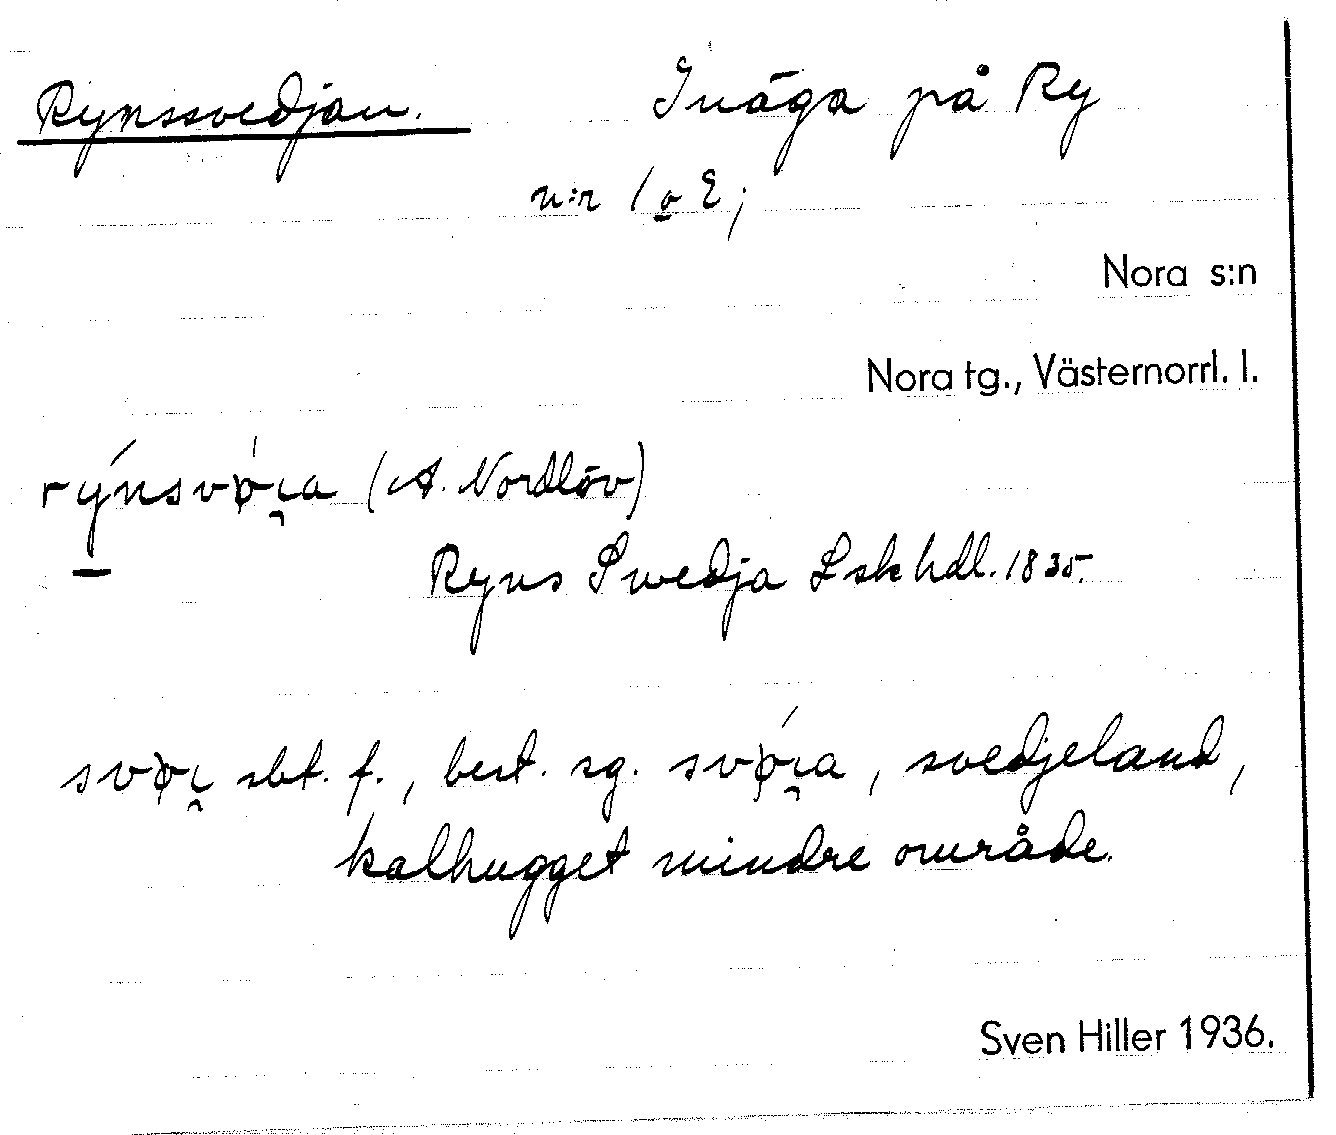 Rynssvedjan. Inäga på Ry
n:r 1 o 2;
Nora s:n
Nora tg., Västernorrl. l.
(A. Nordlöv)
Ryns Swedja Lskhdl. 1835.
sbt. f., best. sg. , svedjeland,
kalhugget mindre område.
Sven Hiller 1936.